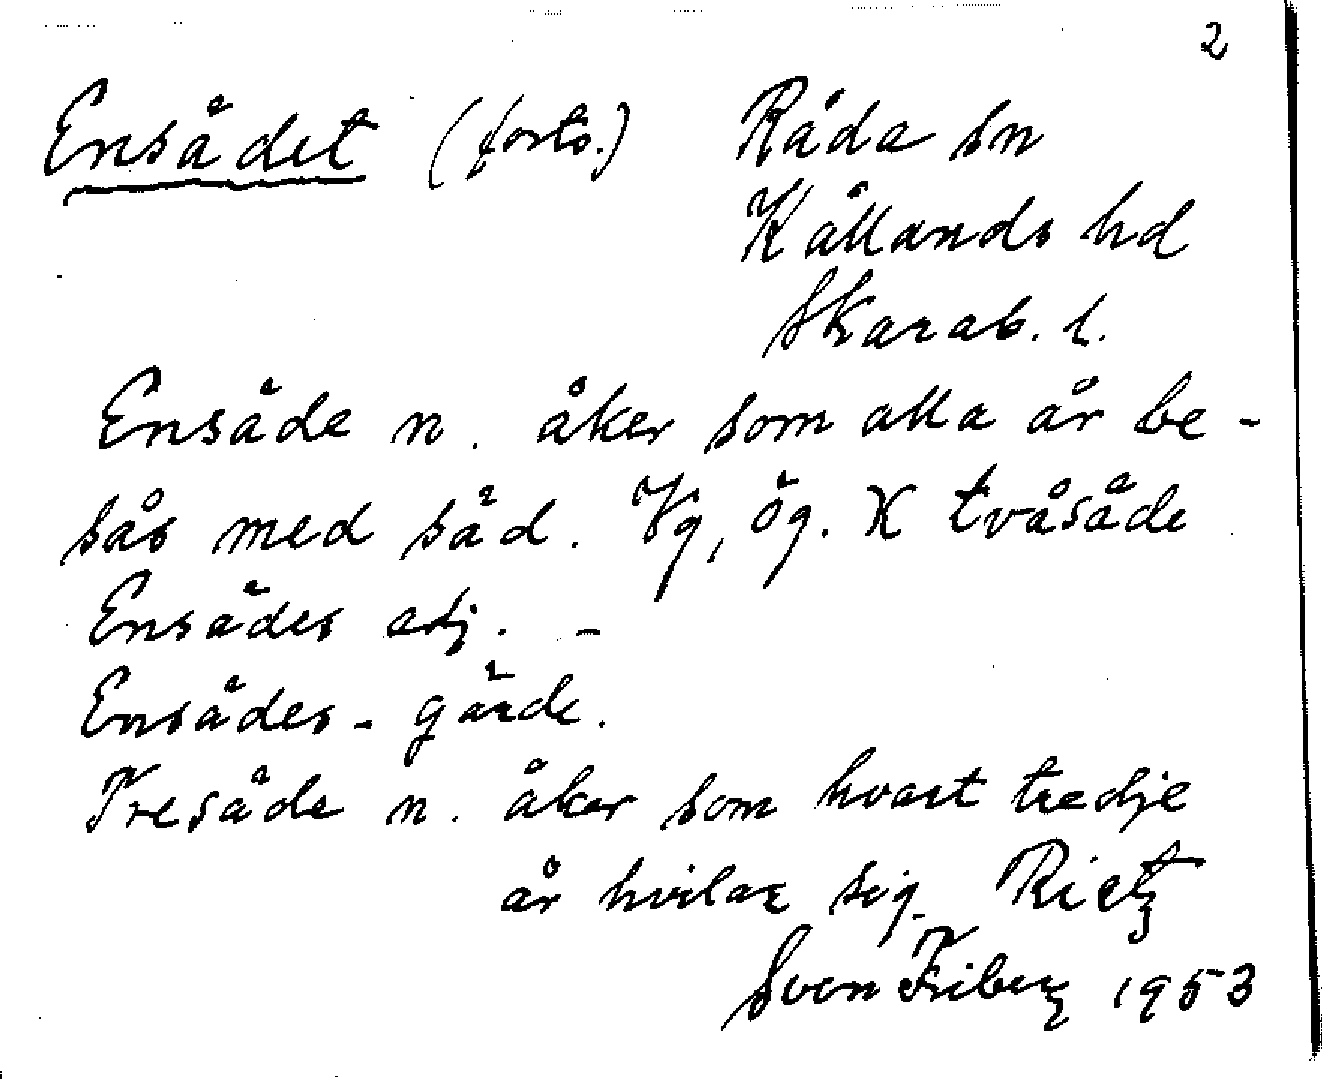 2
Ensådet (forts.) Råda sn
Kållands hd
Skarab. l.
Ensäde n. åker som alla år be-
sås med säd. Vg, ög. X tvåsäde
Ensädes adj. -
Ensädes-gärde.
Tresäde n. åker som hvart tredje
år hvilar sig. Rietz
Sven Friberg 1953